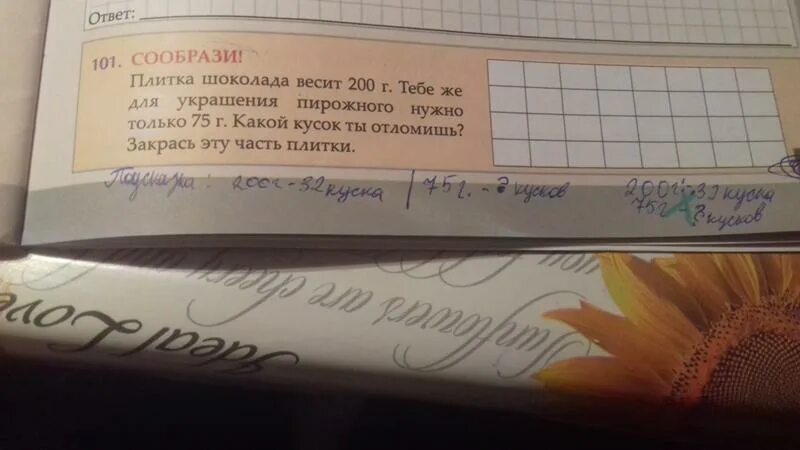 Ответ:
101. СООБРАЗИ!
Плитка шоколада весит 200 г. Тебе же
для украшения пирожного нужно
только 75 г. Какой кусок ты отломишь?
Закрась эту часть плитки.
Подсказка: 200г - 32 куска | 75г. - ? кусков
200г - 32 куска
75г - ? кусков
Sunflowers are cheery and
you
Ideal Love